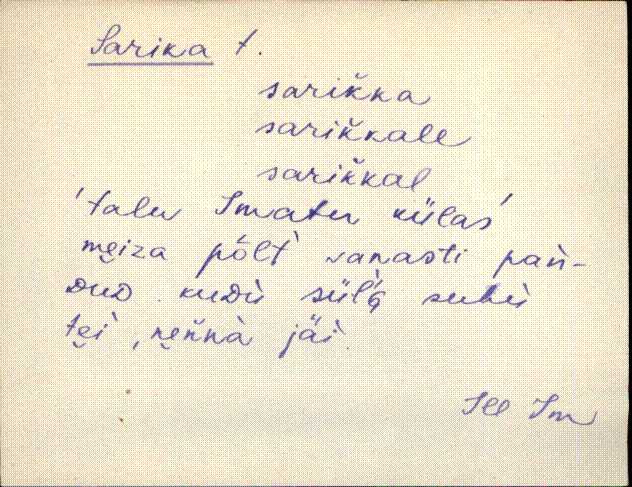 Sarika t.
sarik̆ka
sarik̆kale
sarik̆kal
'talu Imatu külas'
mei̯za põlt̀ vanasti pań-
dud kudù sül'g suhù
tei̯, nen̆nà jäì
Ill Im